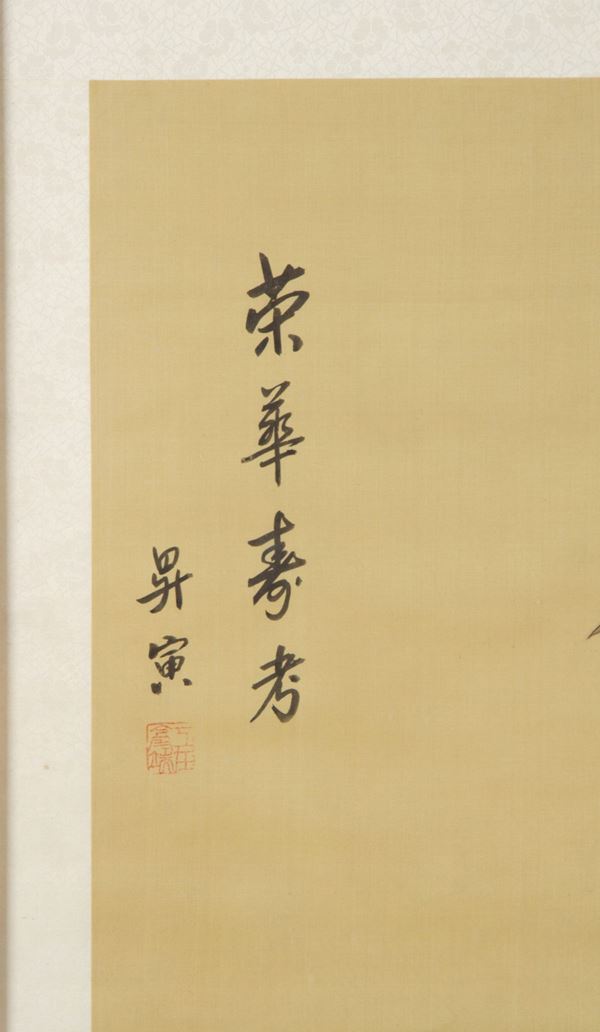 荣華寿考
昇寅